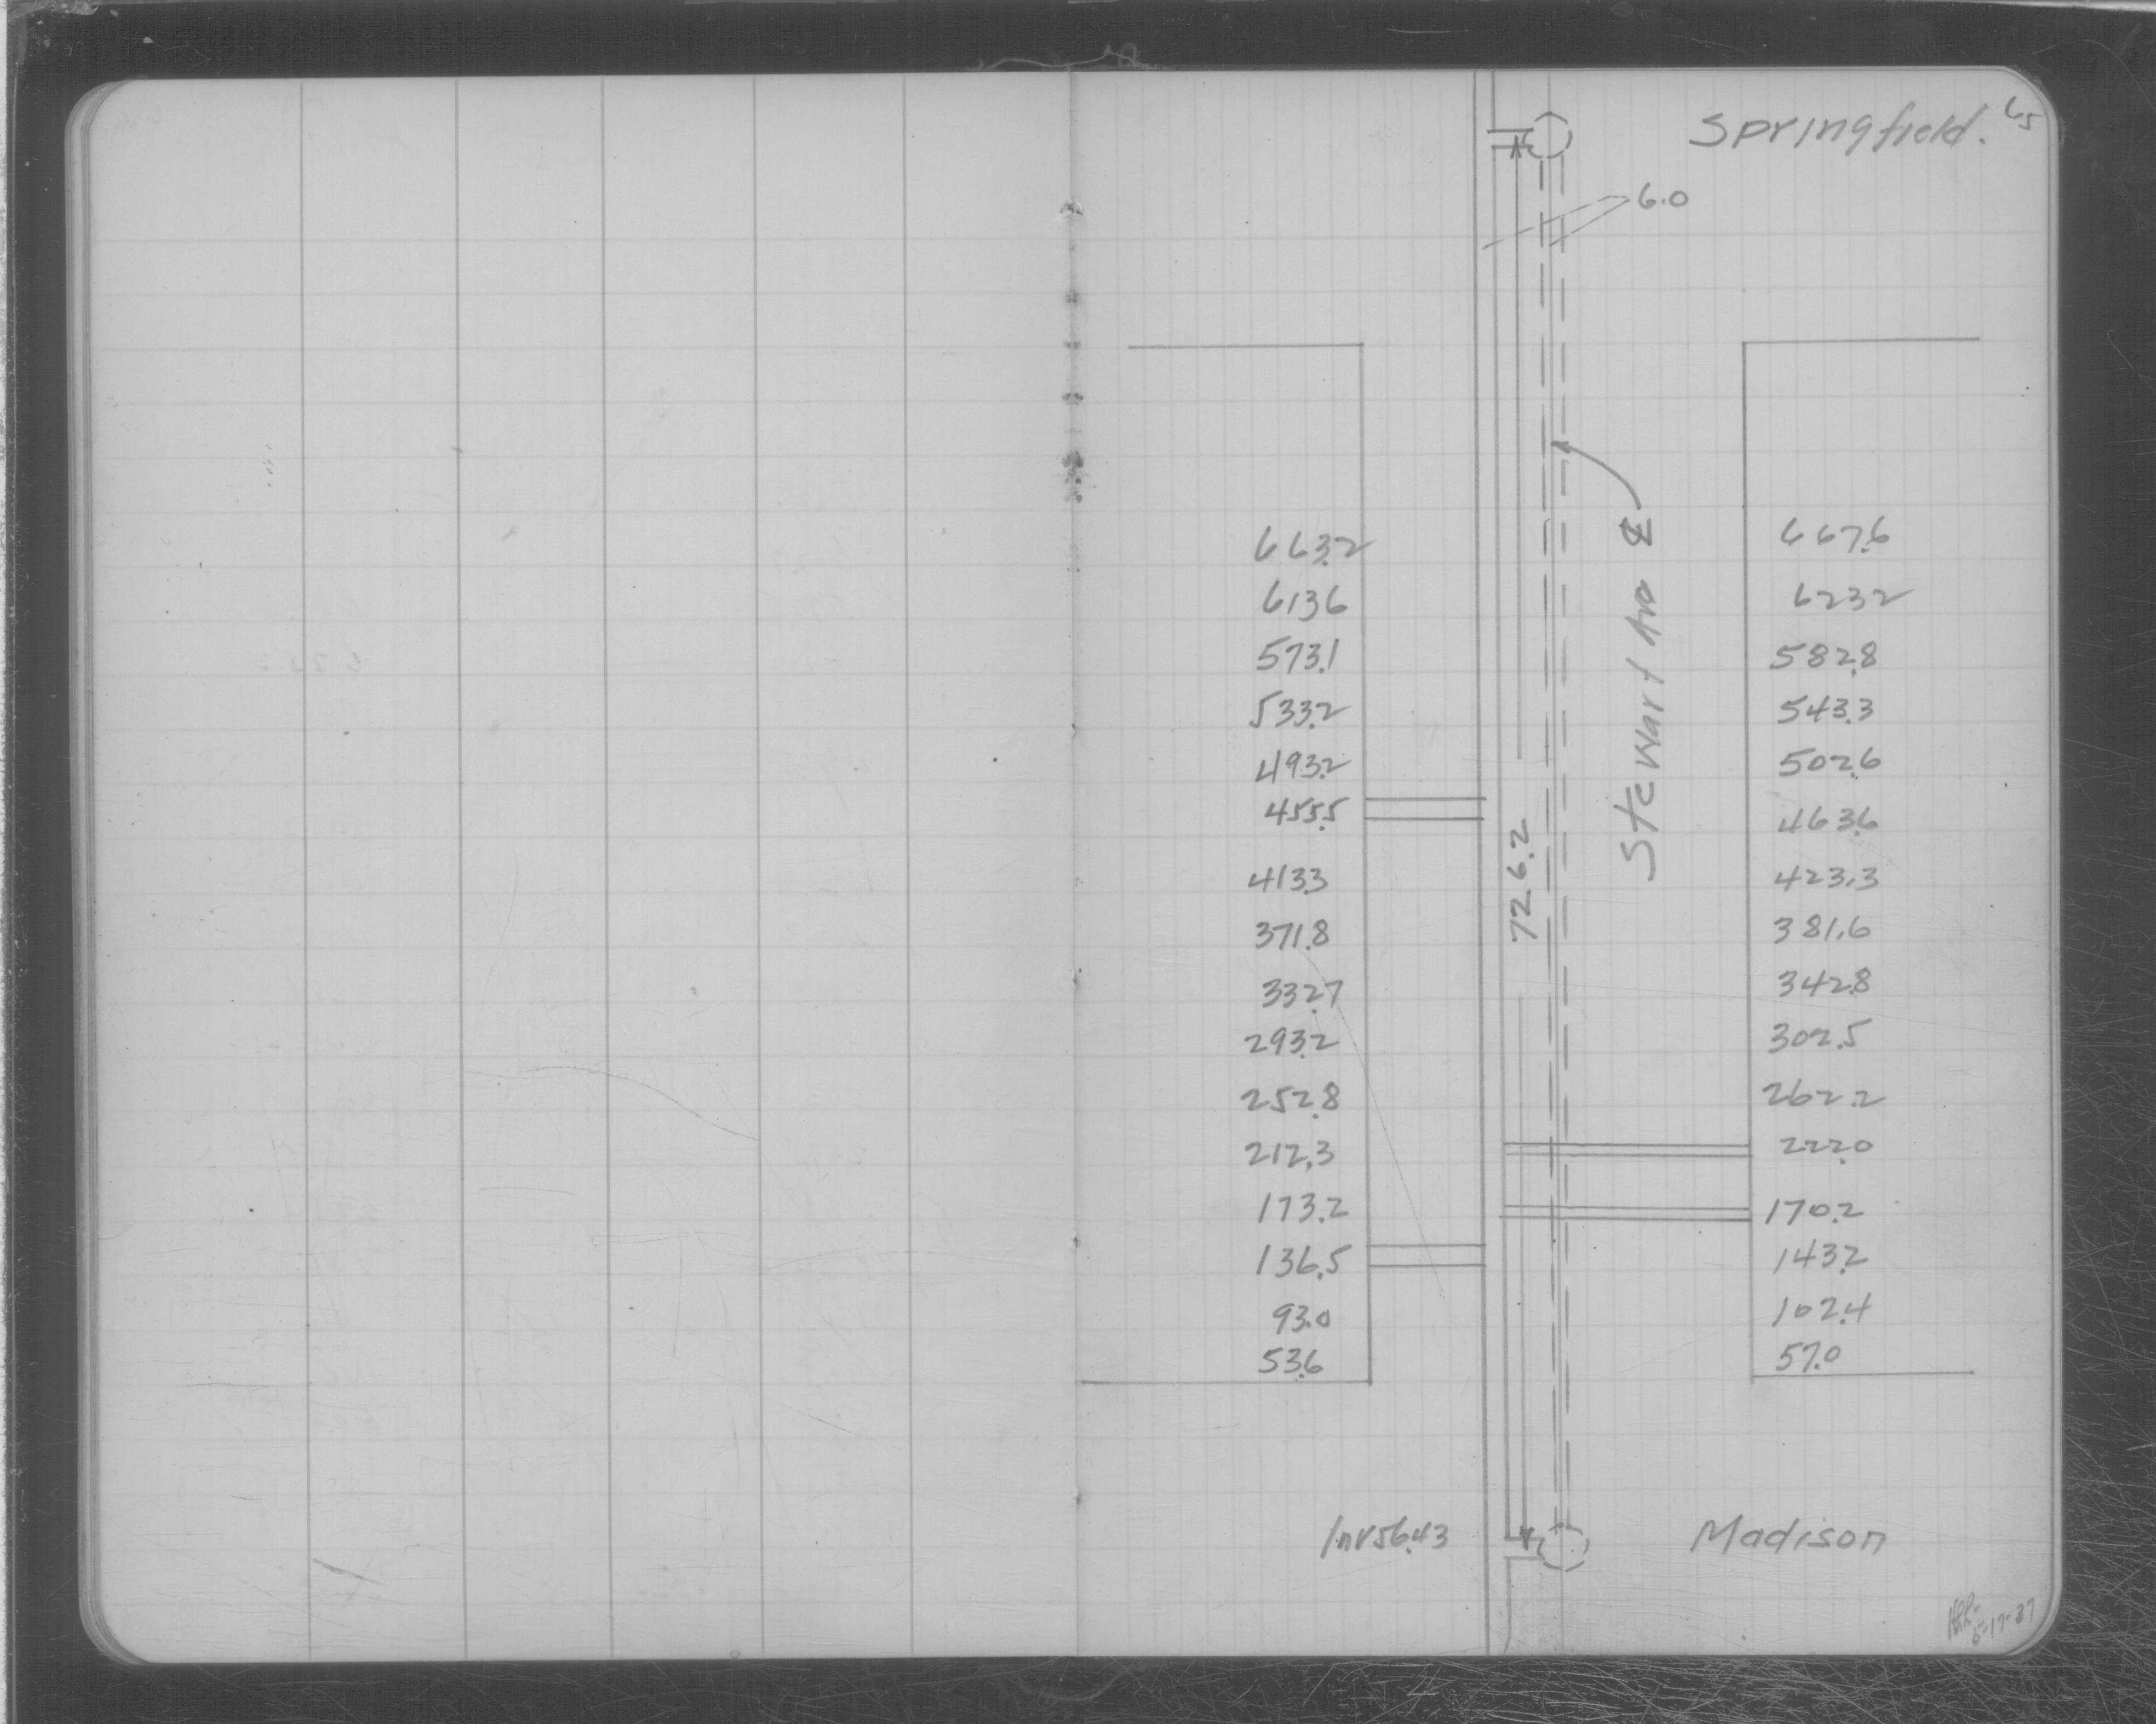 65
Springfield.
6.0
663.2 667.6
613.6 623.2
573.1 582.8
533.2 543.3
493.2 502.6
455.5 463.6
413.3 423.3
371.8 381.6
332.7 342.8
293.2 302.5
252.8 262.2
212.3 222.0
173.2 170.2
136.5 143.2
93.0 102.4
53.6 57.0
726.2
Stewart Ave ℄
Inv 56.43
Madison
5-17-37